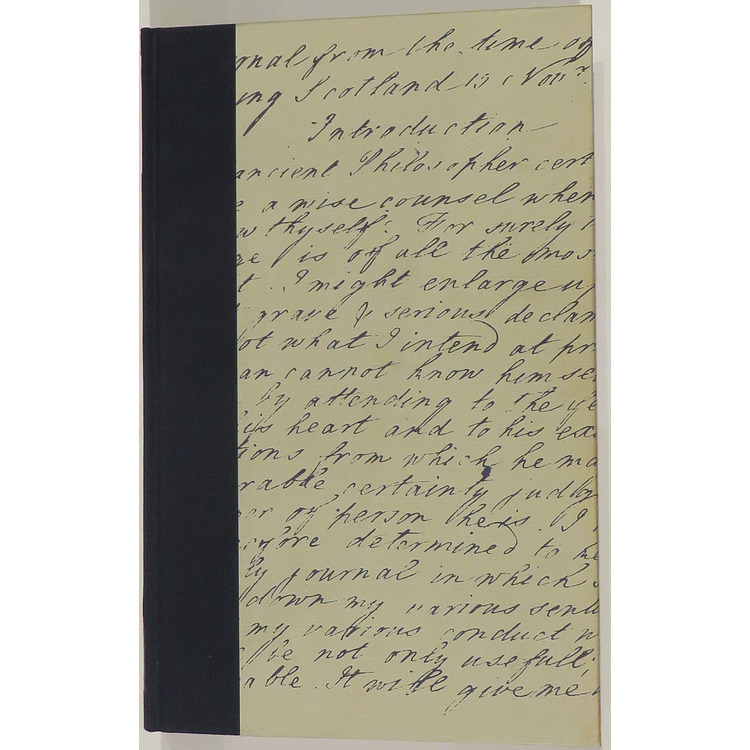 nal from the time of
ng Scotland 15 Nov.r
Introduction
ancient Philosopher cert
a wise counsel when
w thyself: For surely
ge is of all the mos
t. I might enlarge up
grave & serious declam
ot what I intend at pr
an cannot know himse
by attending to the fe
is heart and to his ext
tions from which he ma
rable certainty judg
er of person he is. I
efore determined to ke
ly journal in which
down my various senti
my various conduct w
be not only usefull;
able. It will give me